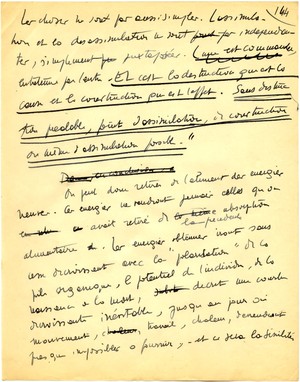 144
Les choses ne sont pas aussi simples. L'assimila-
tion et la desassimilation ne sont pas indépendan-
tes, simplement
L'une est commandée
par l'autre. - ET C'EST la destruction qui est la
cause et la construction qui est l'effet. Sans destruc-
tion préalable, point d'assimilation, de construction
ou même d'assimilation possible. "
On peut donc retirer de l'aliment des énergies
. Ces énergies ne vaudront jamais celles qu'on
avait retiré de absorption
alimentaire. Les énergies obtenues iront sans
cesse décroissant avec la " " de la
organique, le potentiel de l'individu, de la
naissance à la mort, décrit une courbe
décroissante inévitable, jusqu'au jour où
mouvement, travail, chaleur, deviendront
presque impossibles à fournir, - et ce sera la sénilité